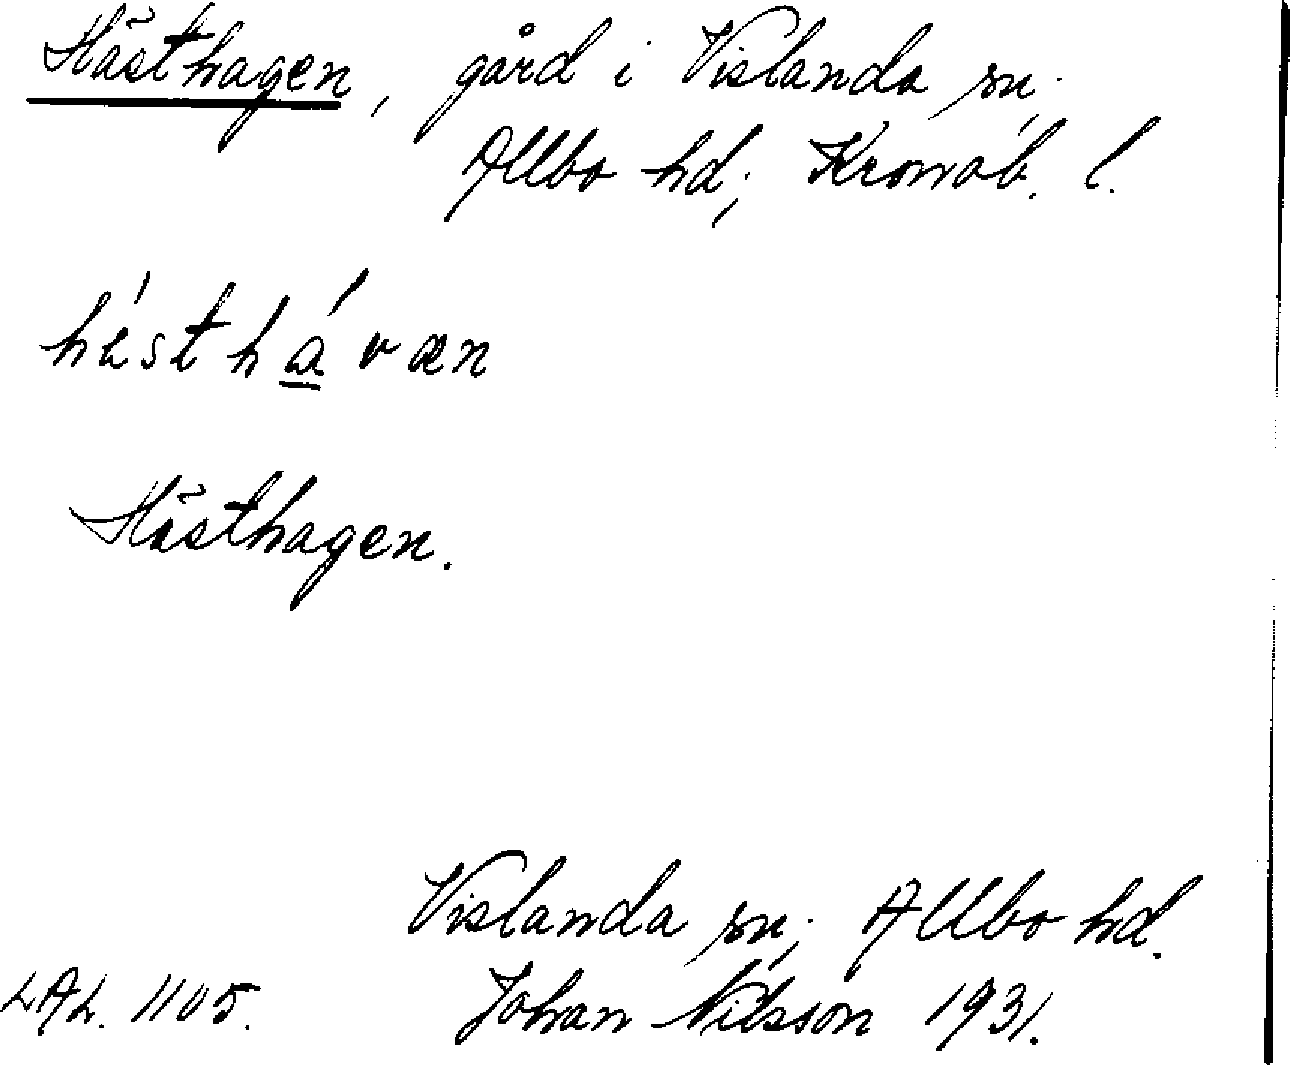 Hästhagen, gård i Vislanda sn;
Allbo hd; Kronob. l.
Hästhagen.
Vislanda sn; Allbo hd.
LAL. 1105. Johan Nilsson 1931.